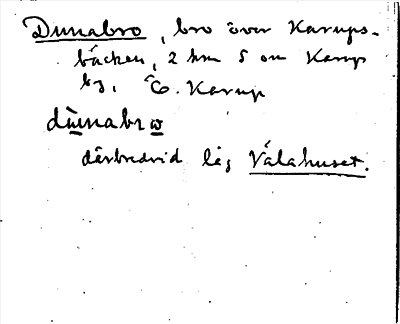 Dunabro, bro över Karups-
bäcken, 2 km S om Karup
by, Ö. Karup
dùnabrω
därbredvid låg Válahuset.